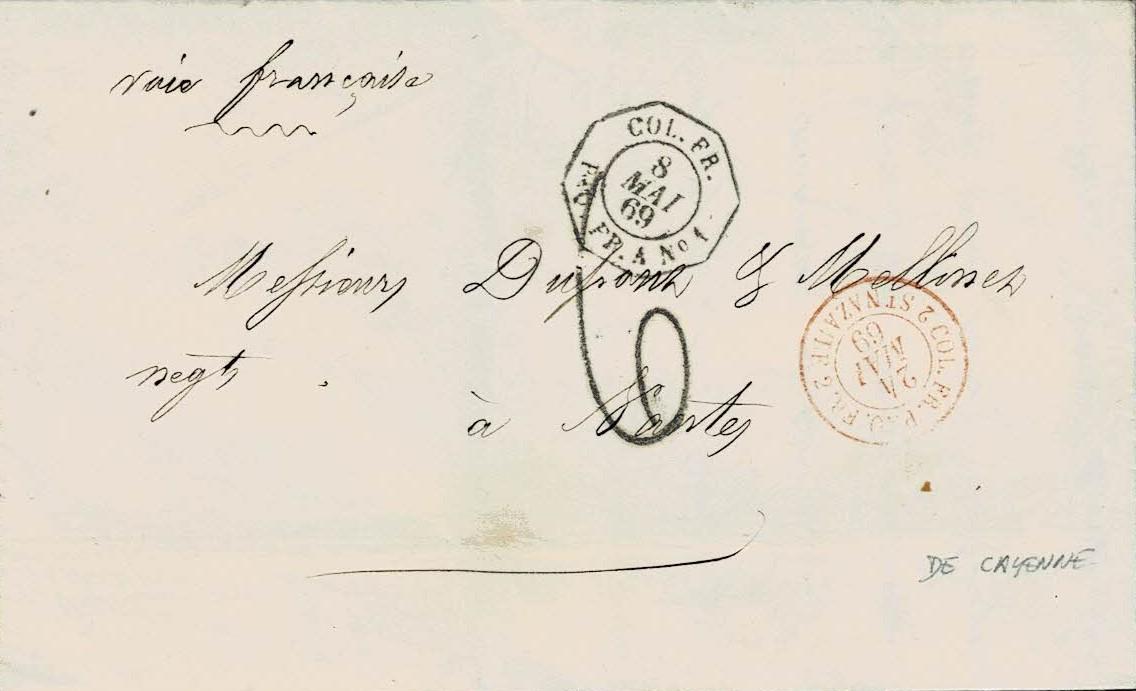 voie française
COL. FR.
8
MAI
69
PAQ. FR. A No 1
Messieurs Dupont & Mellinet
negts
à Nantes
6
COL. FR. PAQ. FR. 2 ST NAZAIRE 2
MAI
69
DE CAYENNE